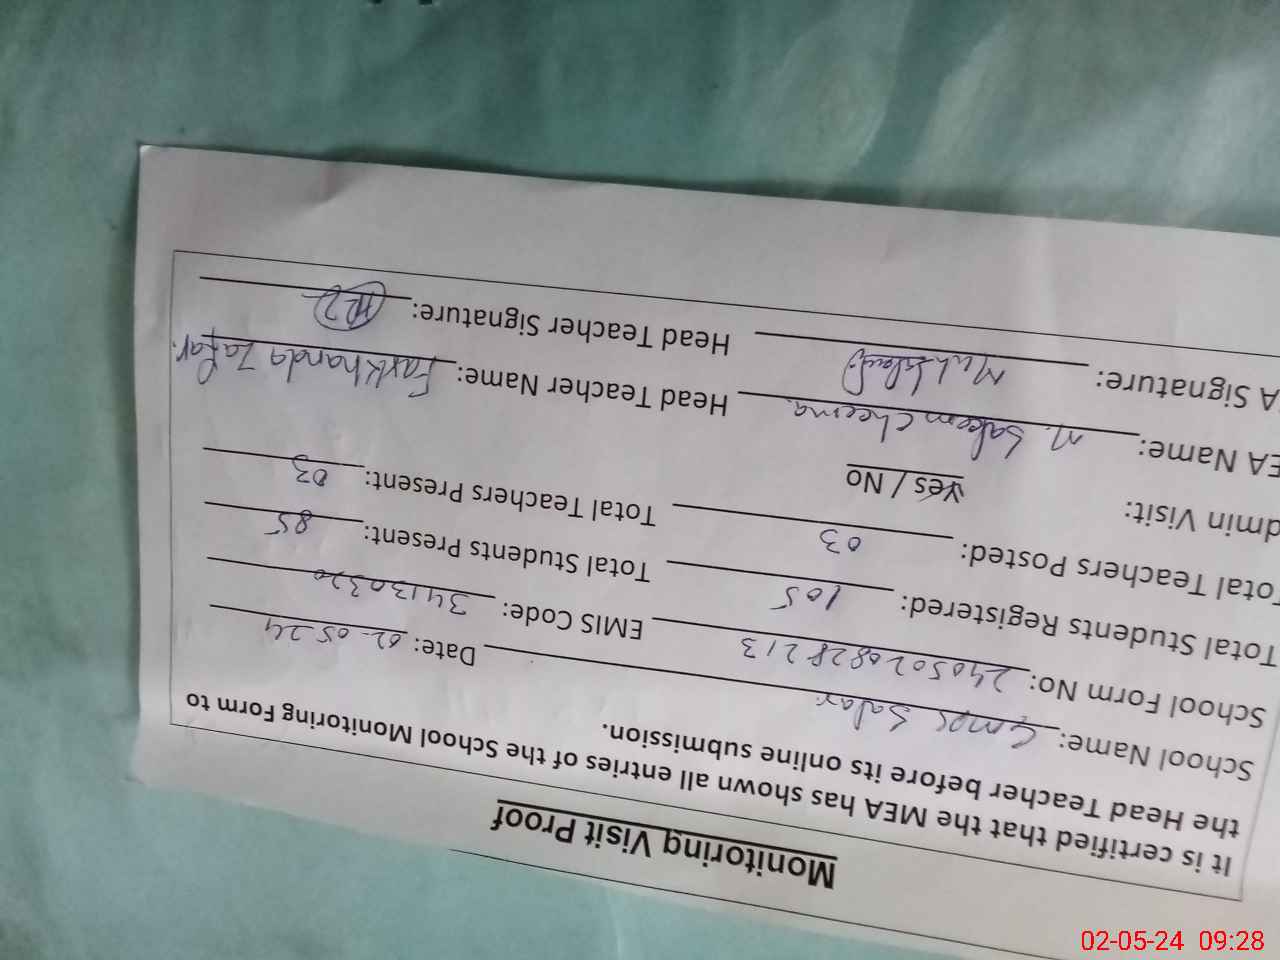 Monitoring Visit Proof
It is certified that the MEA has shown all entries of the School Monitoring Form to
the Head Teacher before its online submission.
School Name: GMPS Salar Date: 02-05-24
School Form No: 2405020828213 EMIS Code: 34130320
Total Students Registered: 105 Total Students Present: 85
Total Teachers Posted: 03 Total Teachers Present: 03
dmin Visit: Yes / No
EA Name: M. Saleem Cheema. Head Teacher Name: Farkhanda Zafar.
A Signature: Head Teacher Signature:
02-05-24 09:28